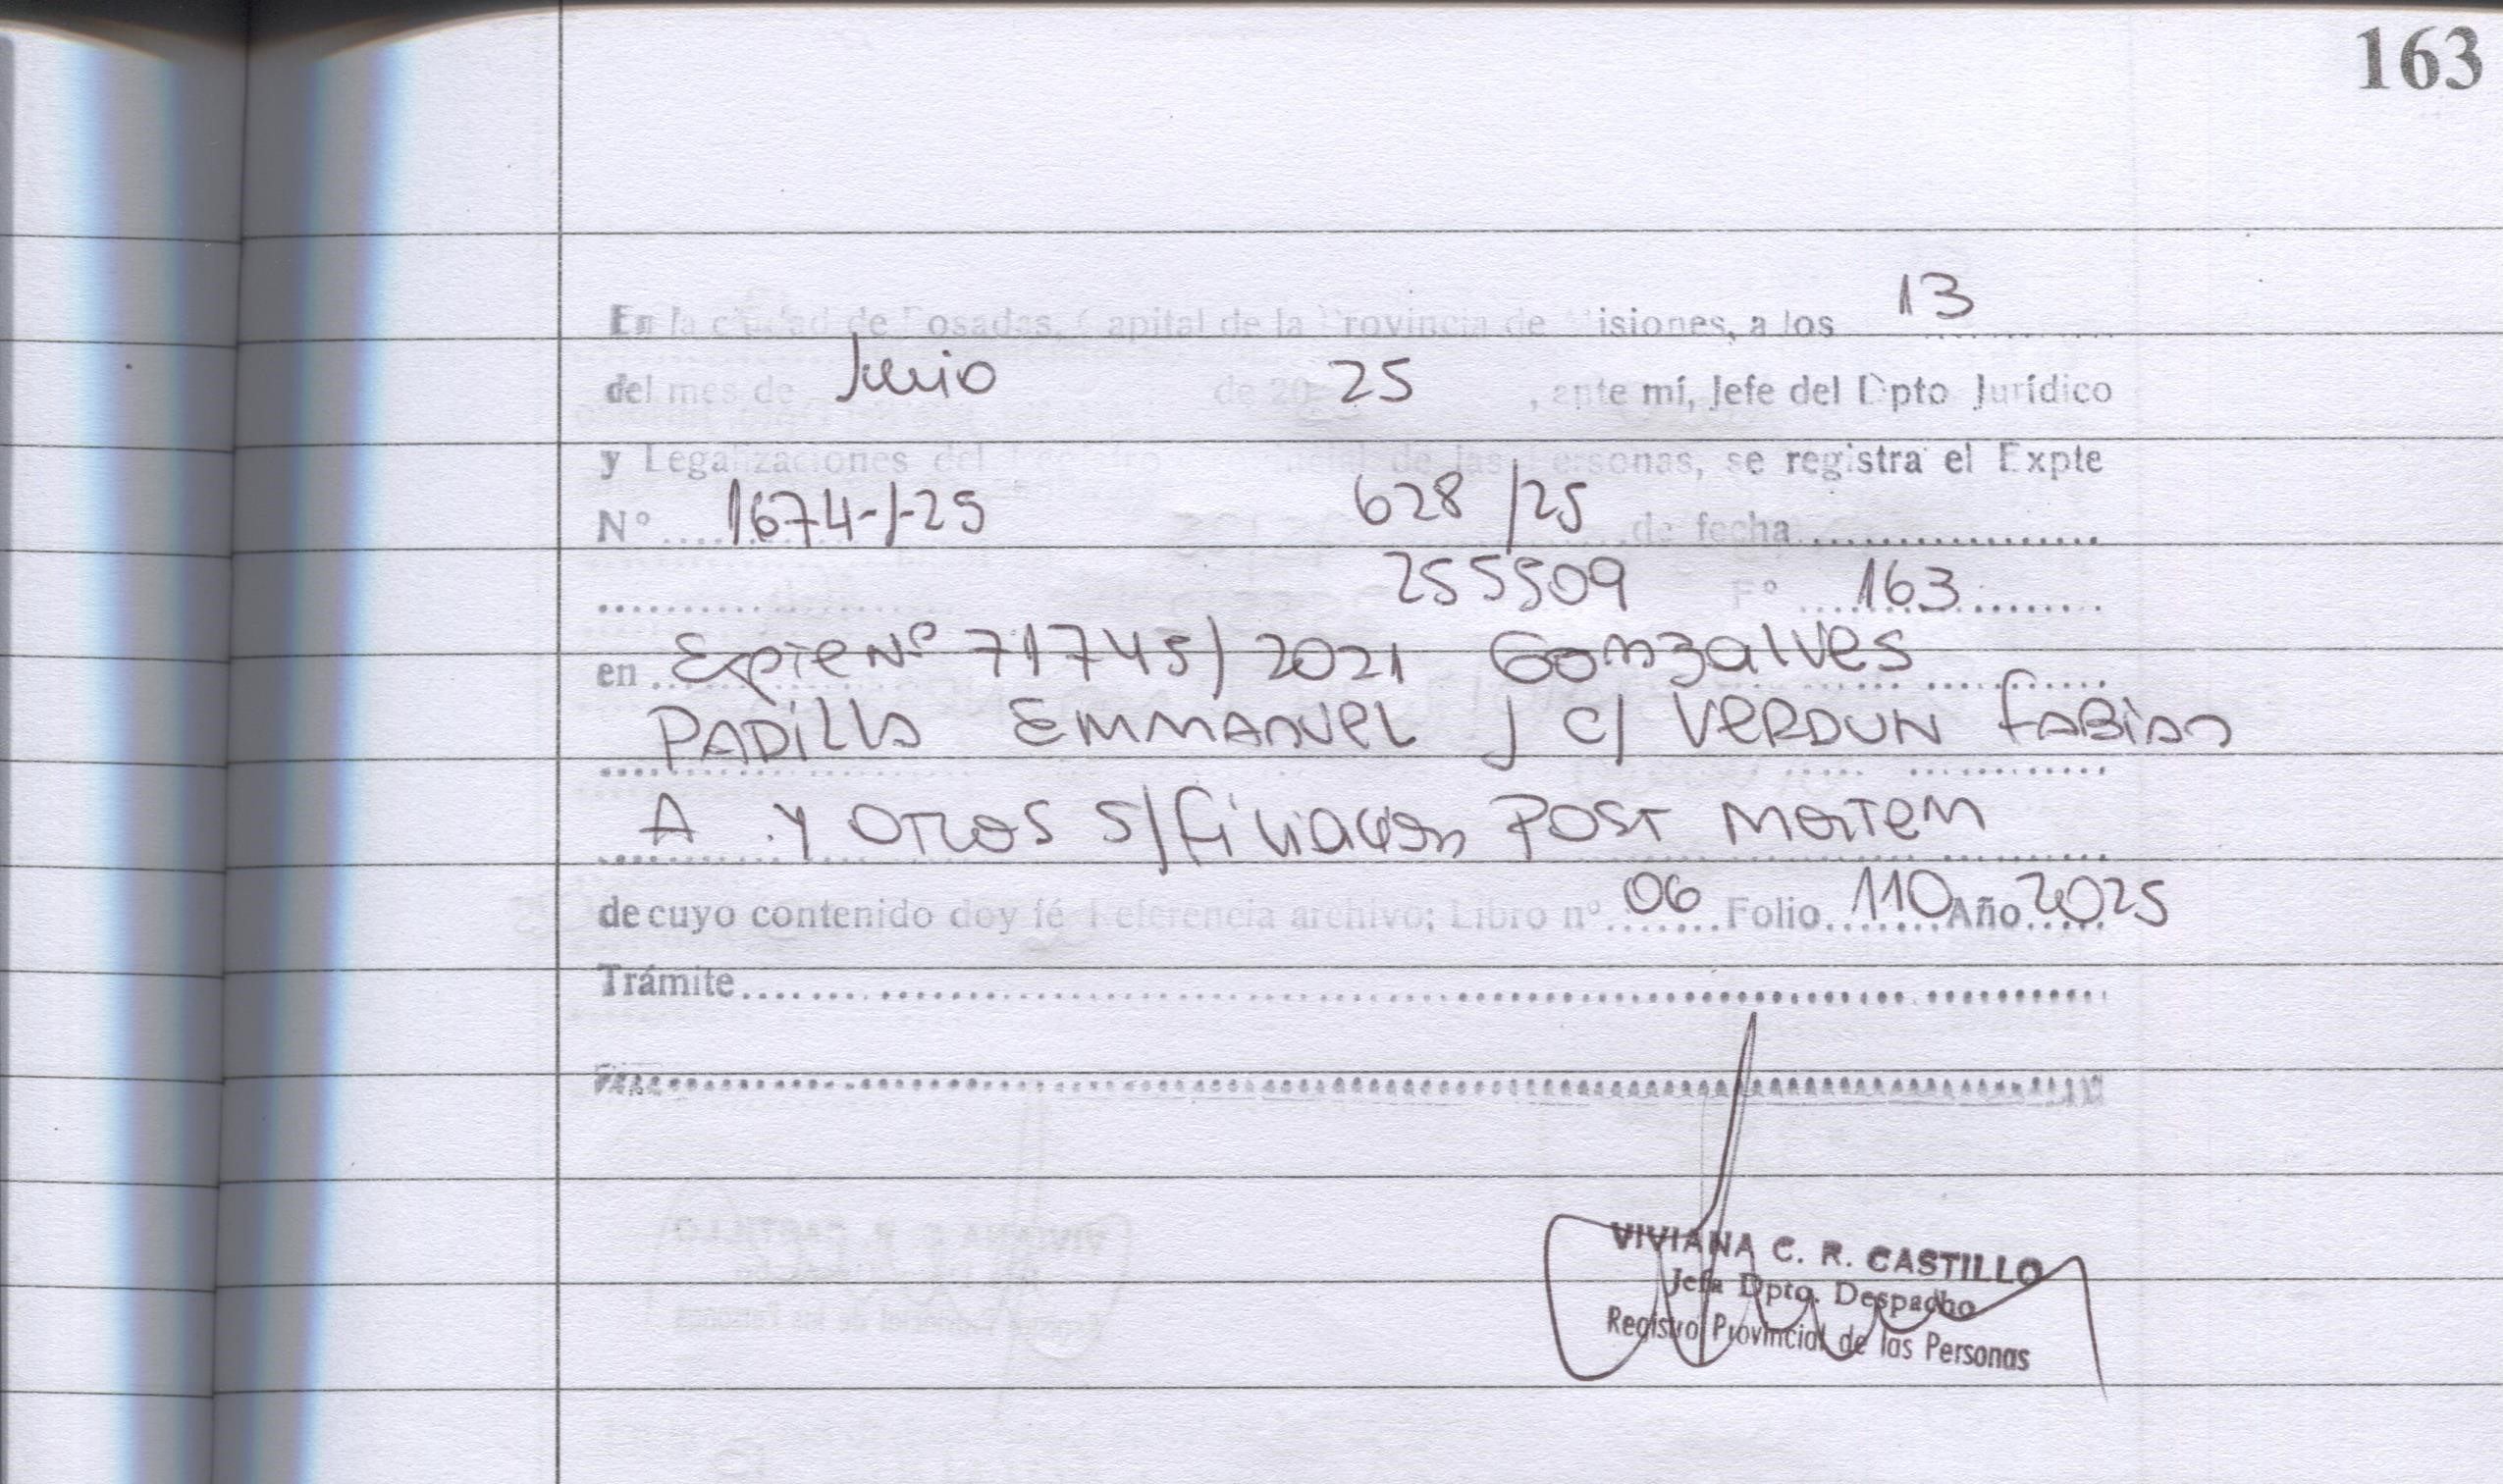 163
En la ciudad de Posadas, Capital de la Provincia de Misiones, a los 13
del mes de Junio de 20 25, ante mí, Jefe del Dpto Jurídico
y Legalizaciones del Registro Provincial de las Personas, se registra el Expte
Nº 1674-J-25 628/25 de fecha
255509 Fº 163
en Expte Nº 71745/2021 Gonzalves
PADILLA EMMANUEL J C/ VERDUN FABIAN
A y OTROS S/Filiación POST MORTEM
de cuyo contenido doy fé Referencia archivo; Libro nº 06 Folio 110 Año 2025
Trámite
VIVIANA C. R. CASTILLO
Jefa Dpto. Despacho
Registro Provincial de las Personas